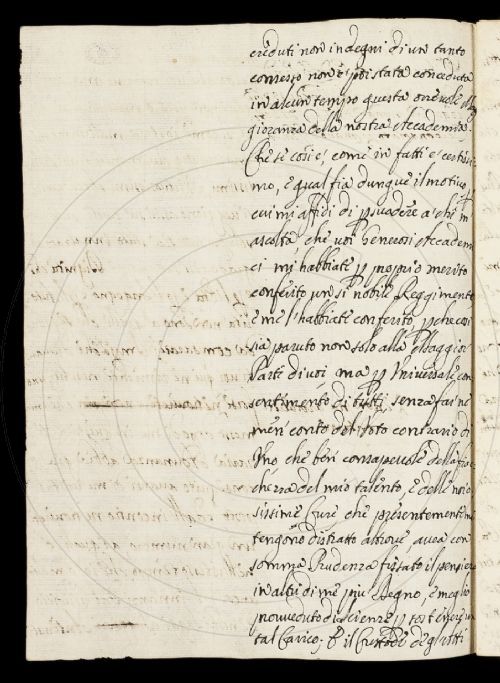 creduti non indegni di un tanto
consesso non è poi stata conceduta
in alcun tempo questa onevole
gioranza della nostra Accademia.
Che se così è, come in fatti è certissi
mo, e qual fia dunque il motivo,
cui mi affidi di psuadere a chi m
ascolta che voi Generosi Accadem
ci mi habbiate p proprio merito
conferito un sì nobile Reggimento
e me l'habbiate conferito, pche così
sia paruto non solo alla Maggior
Parte di voi ma p Universale con
sentimento di tutti senza far ne
men conto del Voto contrario di
Uno che ben consapevole della fiac
chezza del mio talento, e delle noio
sissime cure che presentemente mi
tengono distratto altrove, avea con
somma Prudenza fissato il pensiere
in altri di me più Degno, e meglio
provveduto di scienze p sostenere un
tal Carico; E il Custode degl'